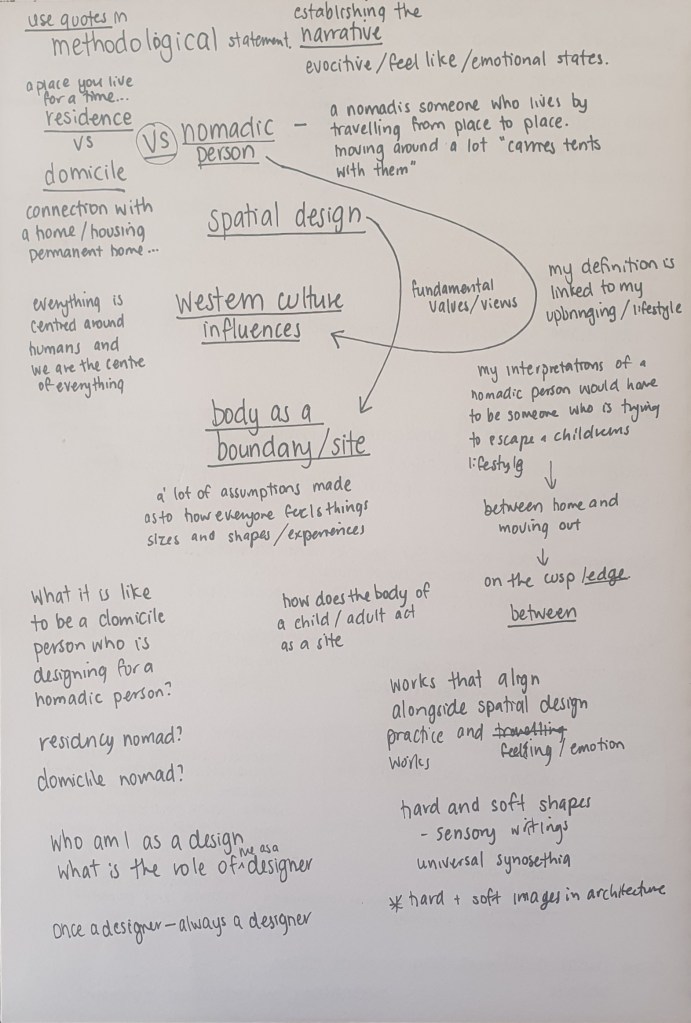 use quotes in
methodological statement.
establishing the
narrative
evocitive/feel like/emotional states.
a place you live
for a time...
residence
vs
domicile
connection with
a home/housing
permanent home...
VS
nomadic
person
– a nomad is someone who lives by
travelling from place to place.
moving around a lot "carries tents
with them"
spatial design
fundamental
values/views
my definition is
linked to my
upbringing/lifestyle
everything is
centred around
humans and
we are the centre
of everything
western culture
influences
my interpretations of a
nomadic person would have
to be someone who is trying
to escape a childrens
lifestyle
between home and
moving out
on the cusp/edge
between
body as a
boundary/site
a lot of assumptions made
as to how everyone feels things
sizes and shapes/experiences
what it is like
to be a domicile
person who is
designing for a
nomadic person?
residncy nomad?
domiclile nomad?
how does the body of
a child/adult act
as a site
works that align
alongside spatial design
practice and travelling
works feeling/emotion
hard and soft shapes
- sensory writings
universal synosethia
* hard + soft images in architecture
who am I as a design
what is the role of ^me as a designer
once a designer – always a designer